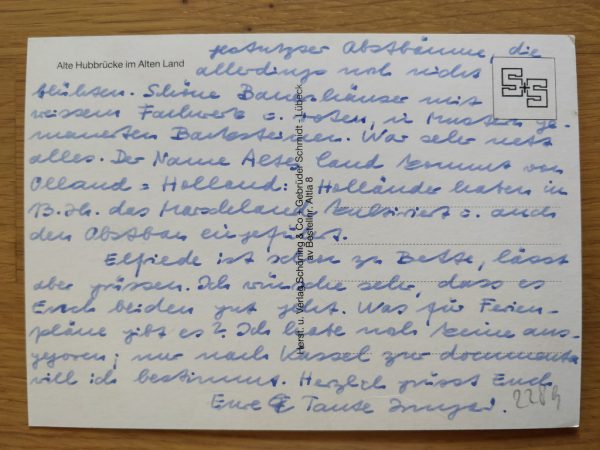 Alte Hubbrücke im Alten Land
gestutzter Obstbäume, die
allerdings noch nicht
blühten. Schöne Bauernhäuser mit
weissem Fachwerk u. roten, in Mustern ge-
mauerten Backsteinen. War sehr nett
alles. Der Name Altes Land kommt von
Olland = Holland: Holländer haben im
13. Jh. das Marschland kultiviert u. auch
den Obstbau eingeführt.
Elfriede ist schon zu Bette, lässt
aber grüssen. Ich wünsche sehr, dass es
Euch beiden gut geht. Was für Ferien-
pläne gibt es? Ich habe noch keine aus-
gegoren; nur nach Kassel zur documenta
will ich bestimmt. Herzlich grüsst Euch
Eure Tante Irmgard.
S+S
Herst. u. Verlag Schöning & Co + Gebrüder Schmidt - Lübeck
av Bestellnr. Altla 8